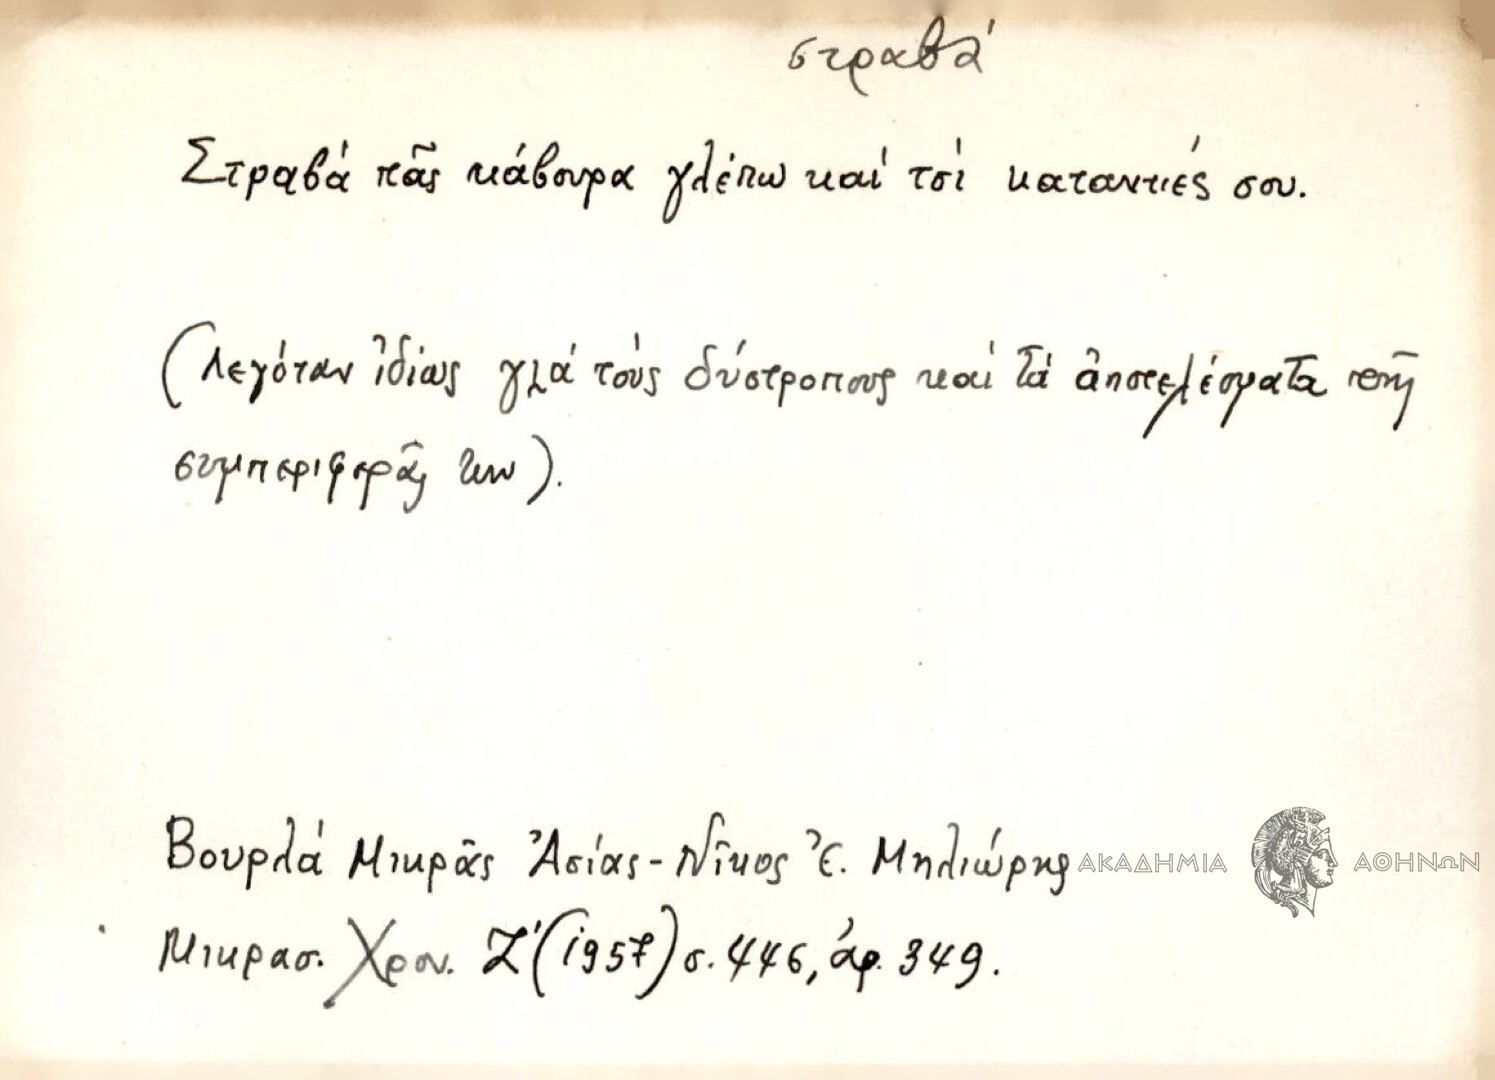 στραβά
Στραβά πᾶς κάβουρα γλέπω καί τσί καταντιές σου.
(Λεγόταν ἰδίως γιά τούς δύστροπους καί τά ἀποτελέσματα τῆς
συμπεριφορᾶς των).
Βουρλά Μικρᾶς Ἀσίας - Νῖκος Ἐ. Μηλιώρης
ΑΚΑΔΗΜΙΑ ΑΘΗΝΩΝ
Μικρασ. Χρον. Ζ' (1957) σ. 446, ἀρ. 349.